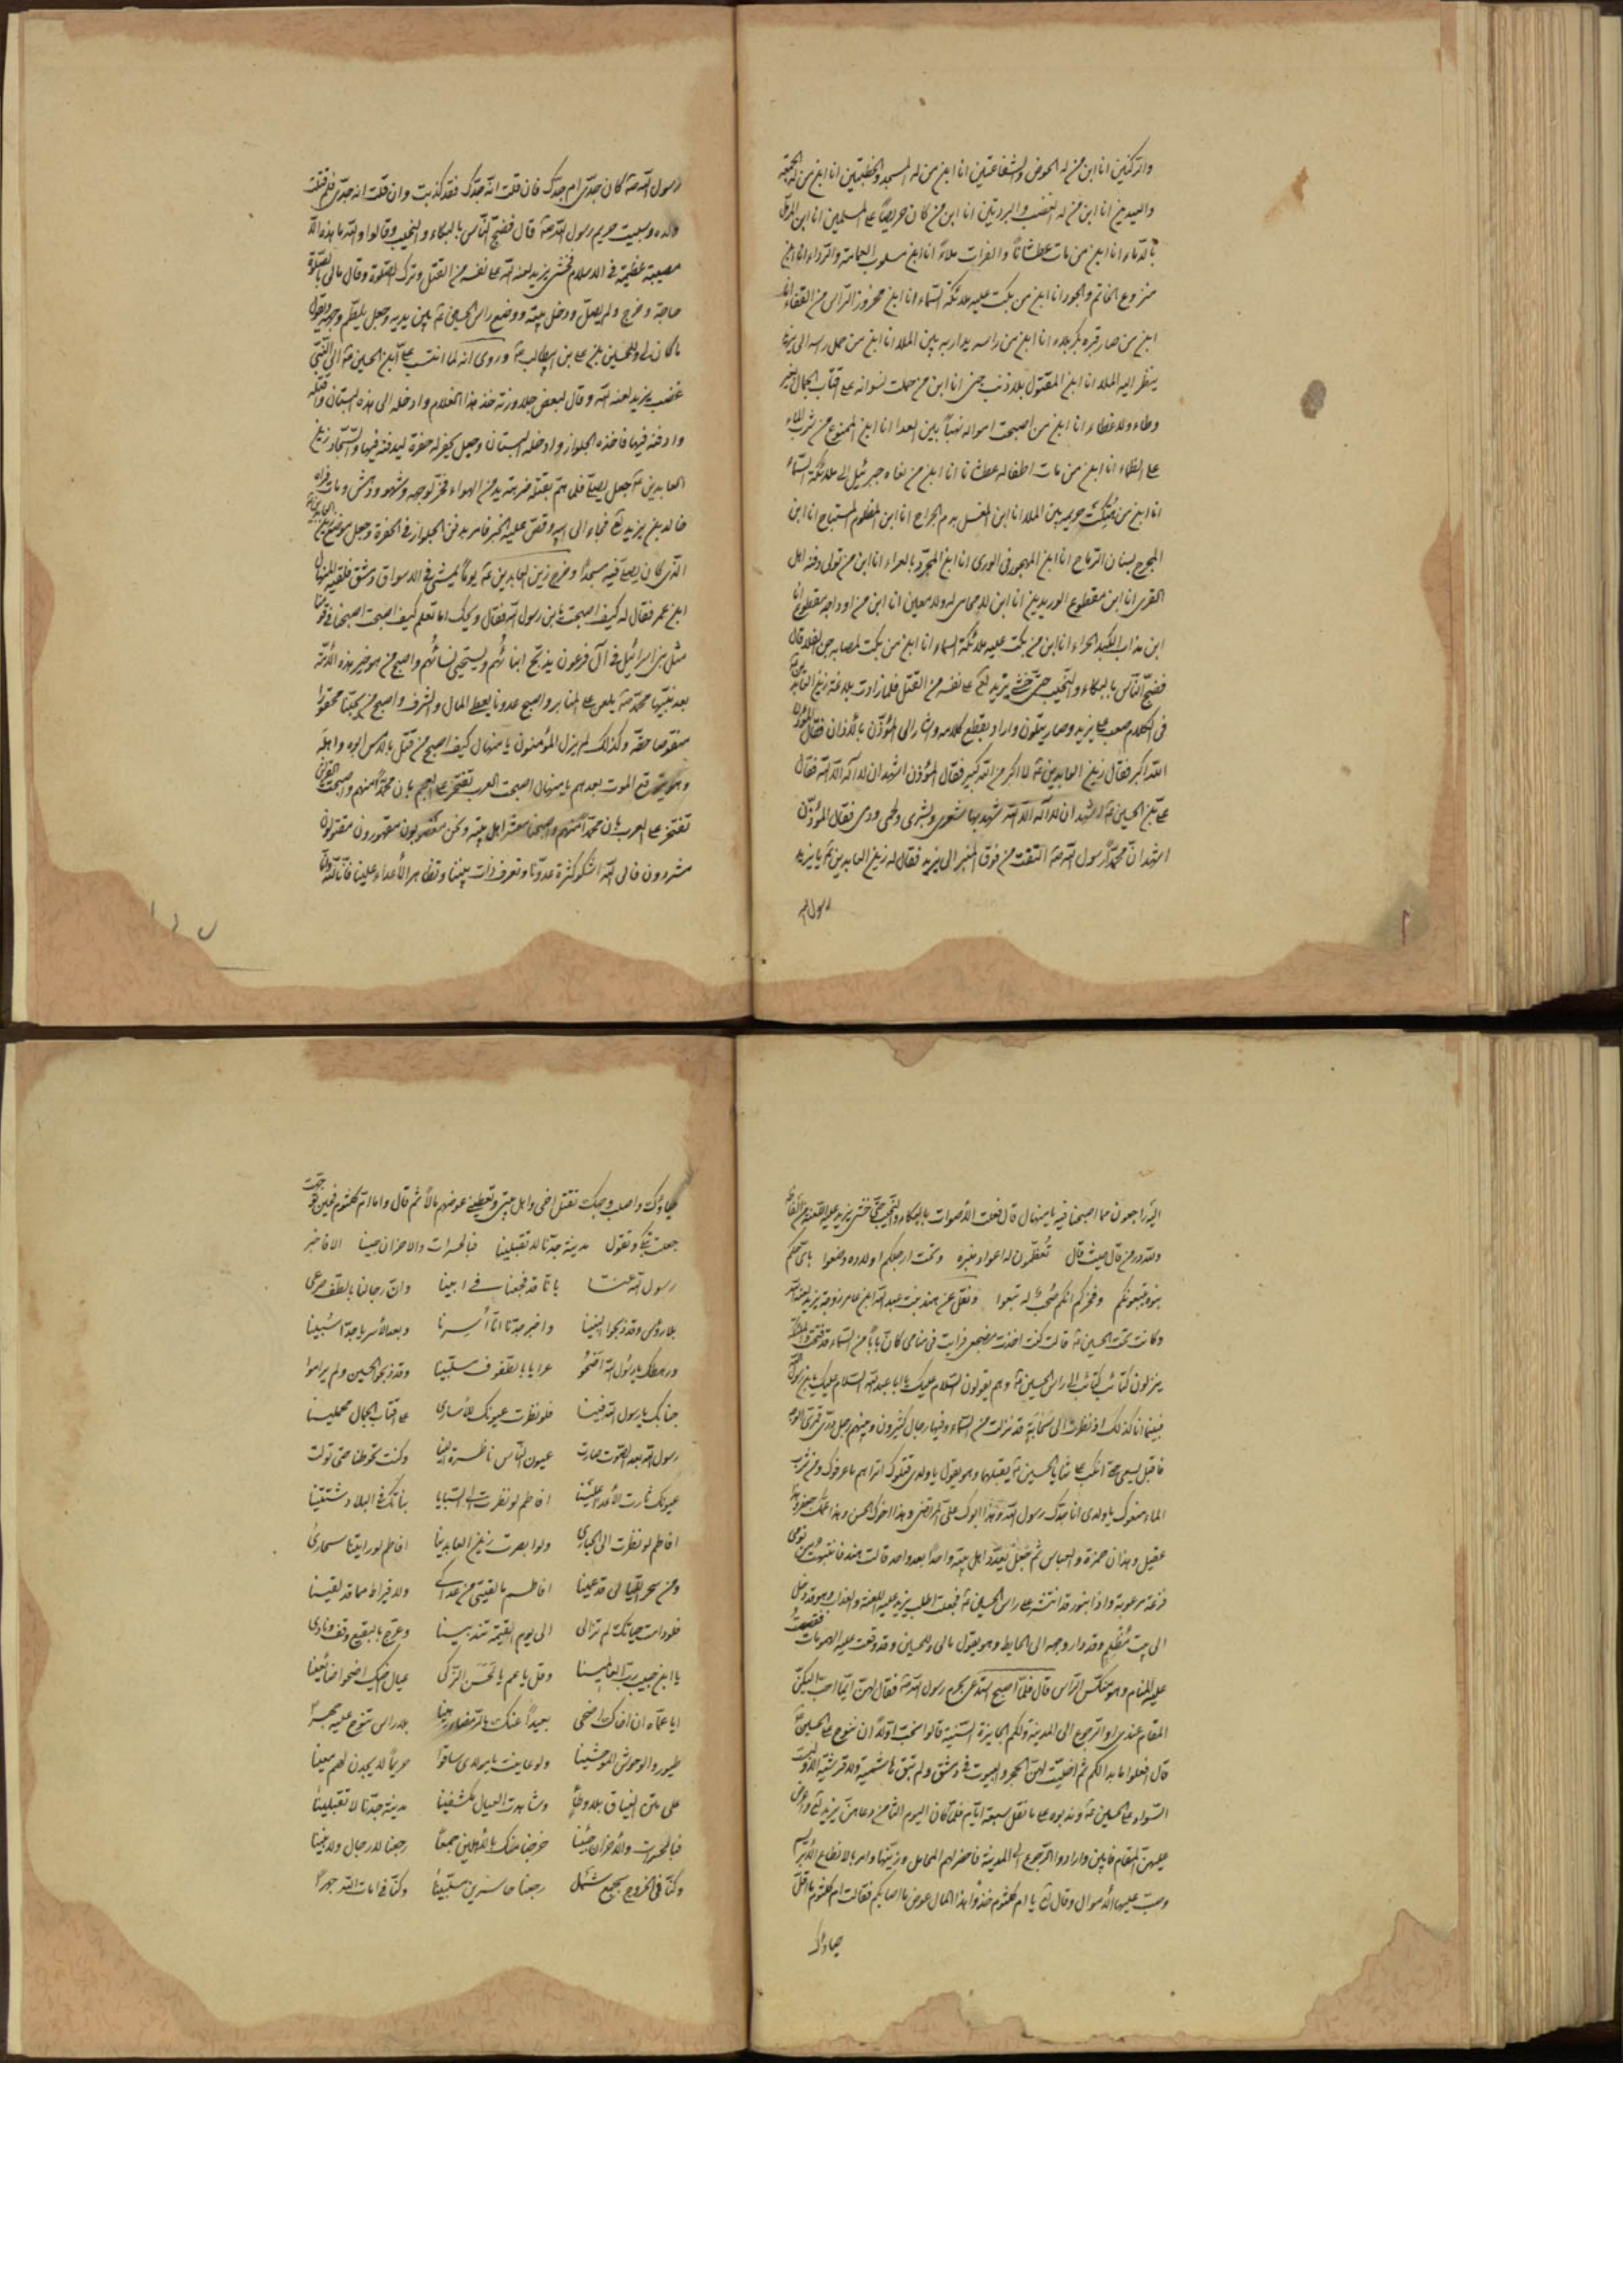 والركنين انا ابن من له الحوض والشفاعتين انا ابن من له المسجد والخطبتين انا ابن من له الجمعة
والعيدين انا ابن من له القضب والبردتين انا ابن من كان حريصاً على المسلمين انا ابن المرمل
بالدماء انا ابن من مات عطشاناً والفرات ملاءً انا ابن مسلوب العمامة والرداء انا ابن
منزوع الخاتم انا ابن من بكت عليه ملائكة السماء انا ابن محزوز الراس من القفاء انا
ابن من صار قبره بكربلاء انا ابن من راسه يدار به بين الملا انا ابن من حمل راسه الى يزيد
ينظر اليه الملا انا ابن المقتول بلا ذنب انا ابن من حملت نسوانه على اقتاب الجمال بغير
وطاء ولا غطاء انا ابن من اصبحت امواله نهباً بين العدا انا ابن الممنوع من شرب الماء
على الظماء انا ابن من مات اطفاله عطشانا انا ابن من نعاه جبرئيل الى ملائكة السماء
انا ابن من هُتِكَت حريمه بين الملا انا ابن المغسل بدم الجراح انا ابن المظلوم المستباح انا ابن
المجروح بسنان الرماح انا ابن المهجور فى الورى انا ابن المجرد بالعراء انا ابن من تولى دفنه اهل
القرى انا ابن مقطوع الوريدين انا ابن لا محامى له ولا معين انا ابن من اوداجه مقطوعة انا
ابن من بكت عليه ملائكة السماء انا ابن من بكت لمصابه
فضج الناس بالبكاء والنحيب حتى خشى يزيد لع على نفسه من القتل فلما زادت بلاغة زين العابدين
فى الكلام صعب على يزيد واراد يقطع كلامه واشار الى المؤذن بالأذان فقال المؤذن
الله اكبر فقال زين العابدين ع لا اكبر من الله كبير فقال المؤذن اشهد ان لا اله الا الله فقال
على بن الحسين ع اشهد ان لا اله الا الله شهد بها شعرى وبشرى ولحمى ودمى فقال المؤذن
اشهد ان محمداً رسول الله ص التفت من فوق المنبر الى يزيد فقال له زين العابدين ع يا يزيد
رسول الله
رسول الله ص كان جدى ام جدك فان قلت انه جدك فقد كذبت وان قلت انه جدى فلم قتلت
ولده وسبيت حريم رسول الله ص قال فضج الناس بالبكاء والنحيب وقالوا والله ما هذه الا
مصيبة عظيمة فى الاسلام فخشى يزيد لعنه الله على نفسه من القتل وترك الصلوة وقال مالى بالصلوة
حاجة وخرج ولم يصل ودخل بيته ووضع راس الحسين ع بين يديه وجعل يلطم وجهه ويقول
ما كان لى وللحسين بن على بن ابيطالب ع وروى انه لما انتسب على بن الحسين ع الى النبى
غضب يزيد لعنه الله وقال لبعض جلاوزته خذ هذا الغلام وادخله الى هذه البستان واقتله
وادفنه فيها فاخذه الجلواز وادخله البستان وجعل يحفر له حفرة ليدفنه فيها والسجاد زين
العابدين ع جعل يصلى فلما هم بقتله ضربته يد من الهواء فخر لوجهه وشهق ودهش ومات فراه
خالد بن يزيد لع فجاء الى ابيه وقص عليه الخبر فامر بدفن الجلواز فى الحفرة وجعل موضع زين العابدين ع
الذى كان يصلى فيه مسجداً وخرج زين العابدين ع يوماً يمشى فى الاسواق دمشق فلقيه المنهال
ابن عمر فقال له كيف اصبحت يا بن رسول الله فقال ويحك اما تعلم كيف اصبحت اصبحنا فى قومنا
مثل بنى اسرائيل فى آل فرعون يذبح ابنائُهم ويستحيى نسائُهم واصبح من هو خير هذه الأمة
بعد نبيها محمد ص يلعن على المنابر واصبح عدونا يعطى المال والشرف واصبح من يحبنا محقورا
منقوصا حقه وكذلك لم يزل المؤمنون يا منهال كيف اصبح من قتل بالامس ابوه واهله
وهو يتوقع الموت بعدهم يا منهال اصبحت العرب تفتخر على العجم بان محمداً منهم واصبحت القريش
تفتخر على العرب بان محمداً منهم واصبحنا معشر اهل بيته ونحن مغصوبون مقهورون مقتولون
مشردون فالى الله اشكو كثرة عدونا وتفرق ذات بيننا وتظاهر الأعداء علينا فانا لله وانا
اليه راجعون مما اصبحنا فيه يا منهال قال فعلت الأصوات بالبكاء والنحيب حتى خشى يزيد عليه اللعنة
ولله در من قال حيث قال تُعظّمون له اعواد منبره وتحت ارجلكم اولاده وضعوا باى حكم
بنوه يتبعونكم وفخركم انكم صحب له تبعوا ونقل عن هند بنت عبد الله ابن عامر زوجة يزيد لعنه الله
وكانت تحت الحسين ع قالت كنت اخذت مضجعى فرايت فى منامى كان باباً من السماء قد فتحت والملائكة
ينزلون كتائب كتائب الى راس الحسين ع وهم يقولون السلام عليك يا ابا عبد الله السلام عليك يا بن رسول الله
فبينما انا كذلك اذ نظرت الى سحابة قد نزلت من السماء وفيها رجال كثيرون وبينهم رجل درى قمرى الوجه
فاقبل يسعى حتى انكب على ثنايا الحسين ع يقبلها وهو يقول يا ولدى قتلوك اتراهم ما عرفوك ومن شرب
الماء منعوك يا ولدى انا جدك رسول الله وهذا ابوك على المرتضى وهذا اخوك الحسن وهذا عمك جعفر وهذا
عقيل وهذان حمزة والعباس ثم جعل يعدّد اهل بيته واحداً بعد واحد قالت هند فانتبهت من نومى
فزعة مرعوبة واذا بنور قد انتشر على راس الحسين ع فجعلت اطلب يزيد عليه اللعنة والعذاب وهو قد دخل
الى بيت مُظلم وقد دار وجهه الى الحايط وهو يقول مالى وللحسين وقد وقعت عليه الهمومات فقصصت
عليه المنام وهو منكّس الراس قال فلما اصبح استدعى بحرم رسول الله ص فقال لهن ايما احب اليكن
المقام عندى او الرجوع الى المدينة ولكم الجايزة السنيّة قالوا نحب اولاً ان ننوح على الحسين ع
قال افعلوا ما بدا لكم ثم اخليت لهن الحجر والبيوت فى دمشق ولم تبق هاشمية ولا قرشية الا ولبست
السواد على الحسين ع وندبوه على ما نقل سبعة ايام فلما كان اليوم الثامن دعاهن يزيد لع واعرض
عليهن المقام فابين وارادوا الرجوع الى المدينة فاحضر لهم المحامل وزينها وامر بالانطاع الأبريسم
وصب عليها الأموال وقال لع يا ام كلثوم خذوا هذا المال عوض ما اصابكم فقالت ام كلثوم ما اقل
حياؤك
حياؤك واصلب وجهك تقتل اخى واهل بيتى وتعطينى عوضهم مالاً ثم قال واما ام كلثوم فحين توجهت
جعلت تبكى وتقول مدينة جدنا لا تقبلينا فبالحسرات والاحزان جينا الا فاخبر
رسول الله عنّا بانّا قد فجعنا فى ابينا وان رجالنا بالطف صرعى
بلا رؤس وقد ذبحوا البنينا واخبر جدنا انا أسرنا وبعد الأسر يا جدّ اسُبينا
ورهطك يا رسول الله اضحُو عرايا بالطفوف مسلبينا وقد ذبحوا الحسين ولم يراعوا
جنابك يا رسول الله فينا فلو نظرت عيونك للأسارى على اقتاب الجمال محملينا
رسول الله بعد الصوت صارت عيون الناس ناظرة الينا وكنت تحوطنا حتى تولت
عيونك ثارت الأعدا علينا افاطم لو نظرت الى السبايا بناتك فى البلاد مشتتينا
افاطم لو نظرت الى الحيارى ولو ابصرت زين العابدينا افاطم لو رايتنا سهارى
ومن سهر الليالى قد عمينا افاطم ما لقيتى من عداك ولا قيراط مما قد لقينا
فلو دامت حياتك لم تزالى الى يوم القيمة تندبينا وعرج بالبقيع وقف ونادى
يا ابن حبيب رب العالمينا وقل يا عم يا الحسن الزكى عيال اخيك اضحوا ضائعينا
ايا عماه ان اخاك اضحى بعيداً عنك بالرمضاء رهينا بلا راس تنوح عليه جهراً
طيور والوحوش الموحشينا ولو عاينت يا مولاى ساقوا حريماً لا يجدن لهم معينا
على متن النياق بلا وطاءٍ وشاهدت العيال مكشفينا مدينة جدنا لا تقبلينا
فبالحسرات والأحزان جئنا خرجنا منك بالأهلين جمعاً رجعنا لا رجال ولا بنينا
وكنا فى الخروج بجمع شمل رجعنا حاسرين مسلبينا وكنا فى امان الله جهراً